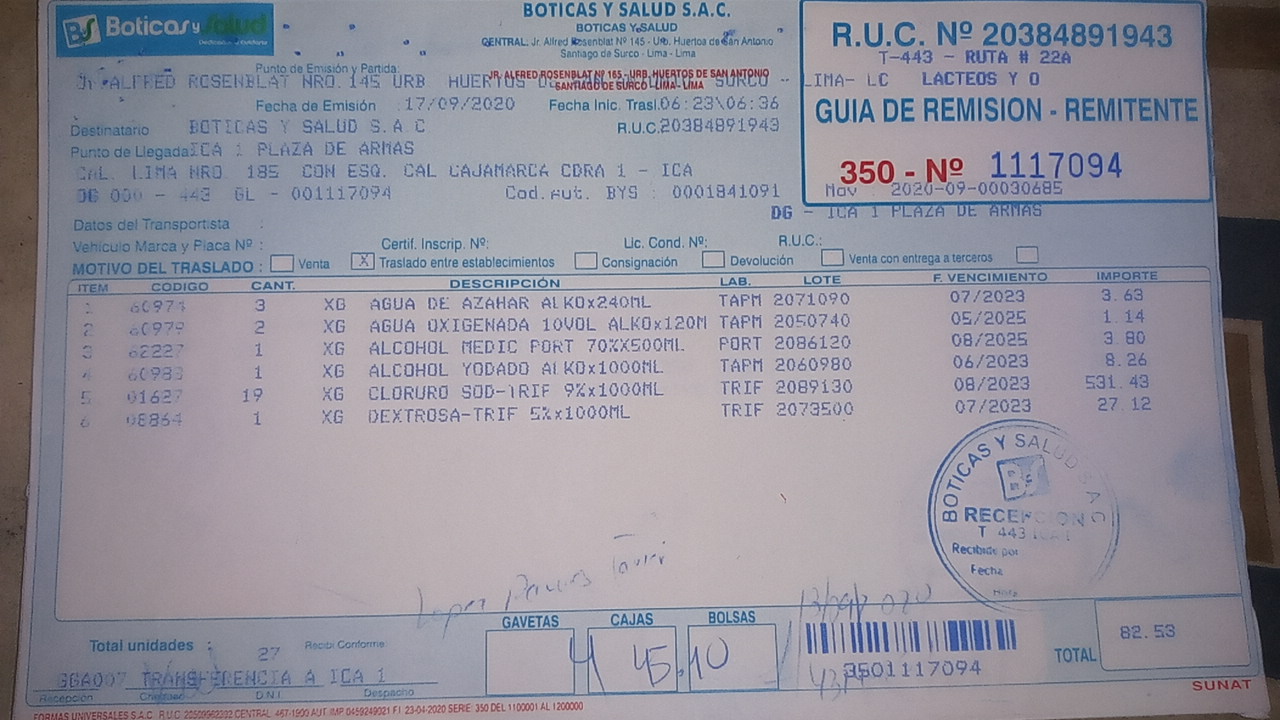 BS Boticas y Salud
BOTICAS Y SALUD S.A.C.
BOTICAS Y SALUD
CENTRAL: Jr. Alfred Rosenblat Nº 145 - Urb. Huertos de San Antonio
Santiago de Surco - Lima - Lima
JR. ALFRED ROSENBLAT Nº 165 - URB. HUERTOS DE SAN ANTONIO
SANTIAGO DE SURCO - LIMA - LIMA
R.U.C. Nº 20384891943
T-443 - RUTA # 22A
LACTEOS Y O
GUIA DE REMISION - REMITENTE
350 - Nº 1117094
Nav 2020-09-00030685
Punto de Emisión y Partida:
Jr. ALFRED ROSENBLAT NRO. 145 URB HUERTOS SURCO - LIMA- LC
Fecha de Emisión : 17/09/2020 Fecha Inic. Trasl. 06:23\06:36
Destinatario BOTICAS Y SALUD S.A.C R.U.C. 20384891943
Punto de Llegada: ICA 1 PLAZA DE ARMAS
CAL. LIMA NRO. 185 CON ESQ. CAL CAJAMARCA CDRA 1 - ICA
DG 000 - 443 GL - 001117094 Cod. Aut. BYS : 0001841091
DG - ICA 1 PLAZA DE ARMAS
Datos del Transportista :
Vehículo Marca y Placa Nº : Certif. Inscrip. Nº: Lic. Cond. Nº: R.U.C.:
MOTIVO DEL TRASLADO : Venta X Traslado entre establecimientos Consignación Devolución Venta con entrega a terceros
ITEM CODIGO CANT. DESCRIPCIÓN LAB. LOTE F. VENCIMIENTO IMPORTE
1 60974 3 XG AGUA DE AZAHAR ALKOx240ML TAPM 2071090 07/2023 3.63
2 60979 2 XG AGUA OXIGENADA 10VOL ALKOx120M TAPM 2050740 05/2025 1.14
3 62227 1 XG ALCOHOL MEDIC PORT 70%X500ML PORT 2086120 08/2025 3.80
4 60983 1 XG ALCOHOL YODADO ALKOx1000ML TAPM 2060980 06/2023 8.26
5 01627 19 XG CLORURO SOD-TRIF 9%x1000ML TRIF 2089130 08/2023 531.43
6 08864 1 XG DEXTROSA-TRIF 5%x1000ML TRIF 2073500 07/2023 27.12
BOTICAS Y SALUD S A C
BS
RECEPCION
T 443
Recibido por
Fecha
Hora
GAVETAS CAJAS BOLSAS
4 45 10
Total unidades : 27 Recibi Conforme
GGA007 TRANSFERENCIA A ICA 1
Recepción Chequeo D.N.I. Despacho
3501117094
TOTAL 82.53
SUNAT
FORMAS UNIVERSALES S.A.C. R.U.C. CENTRAL: 467-1900 AUT. IMP. 0459249021 F.I. 23-04-2020 SERIE: 350 DEL 1100001 AL 1200000